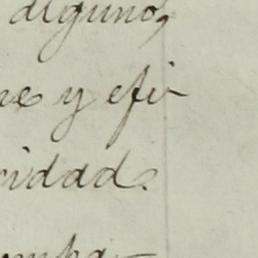 algunos,
ne y efi-
ridad.